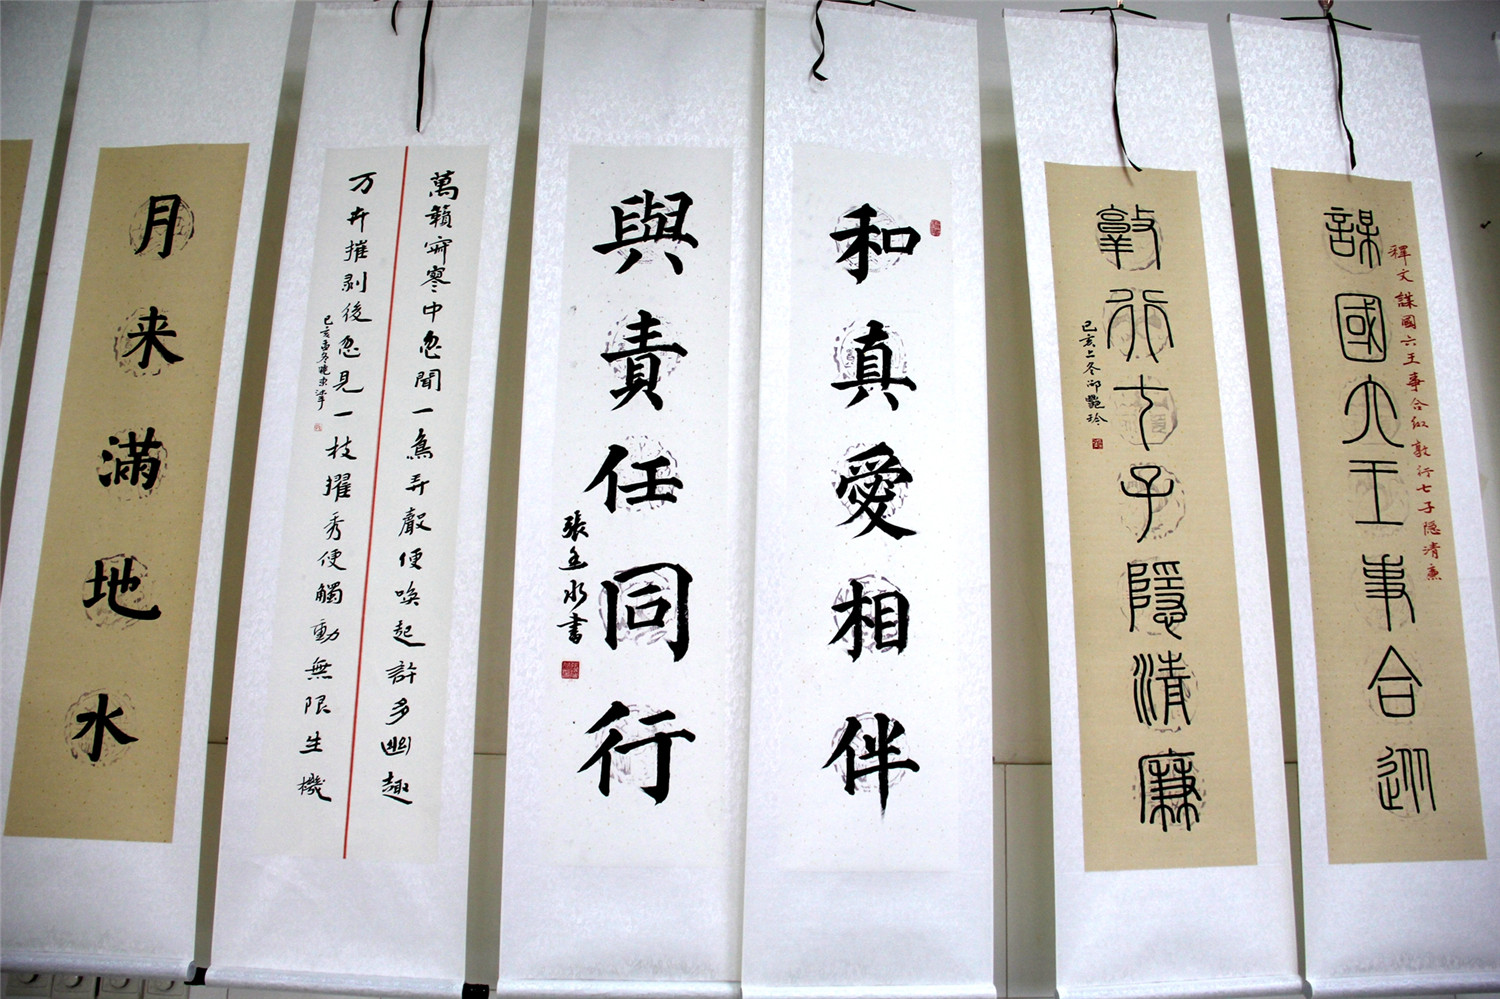 釋文 謀國六王事合 敦行七子隐清廉
謀國六王事合
敦行七子隱清廉
己亥上冬邵艷玲
和真愛相伴
與責任同行
張玉水書
萬籟寂寥中忽聞一鳥弄聲便喚起許多幽趣
万卉摧剥後忽見一枝擢秀便觸動無限生機
己亥孟冬曉東
月来滿地水